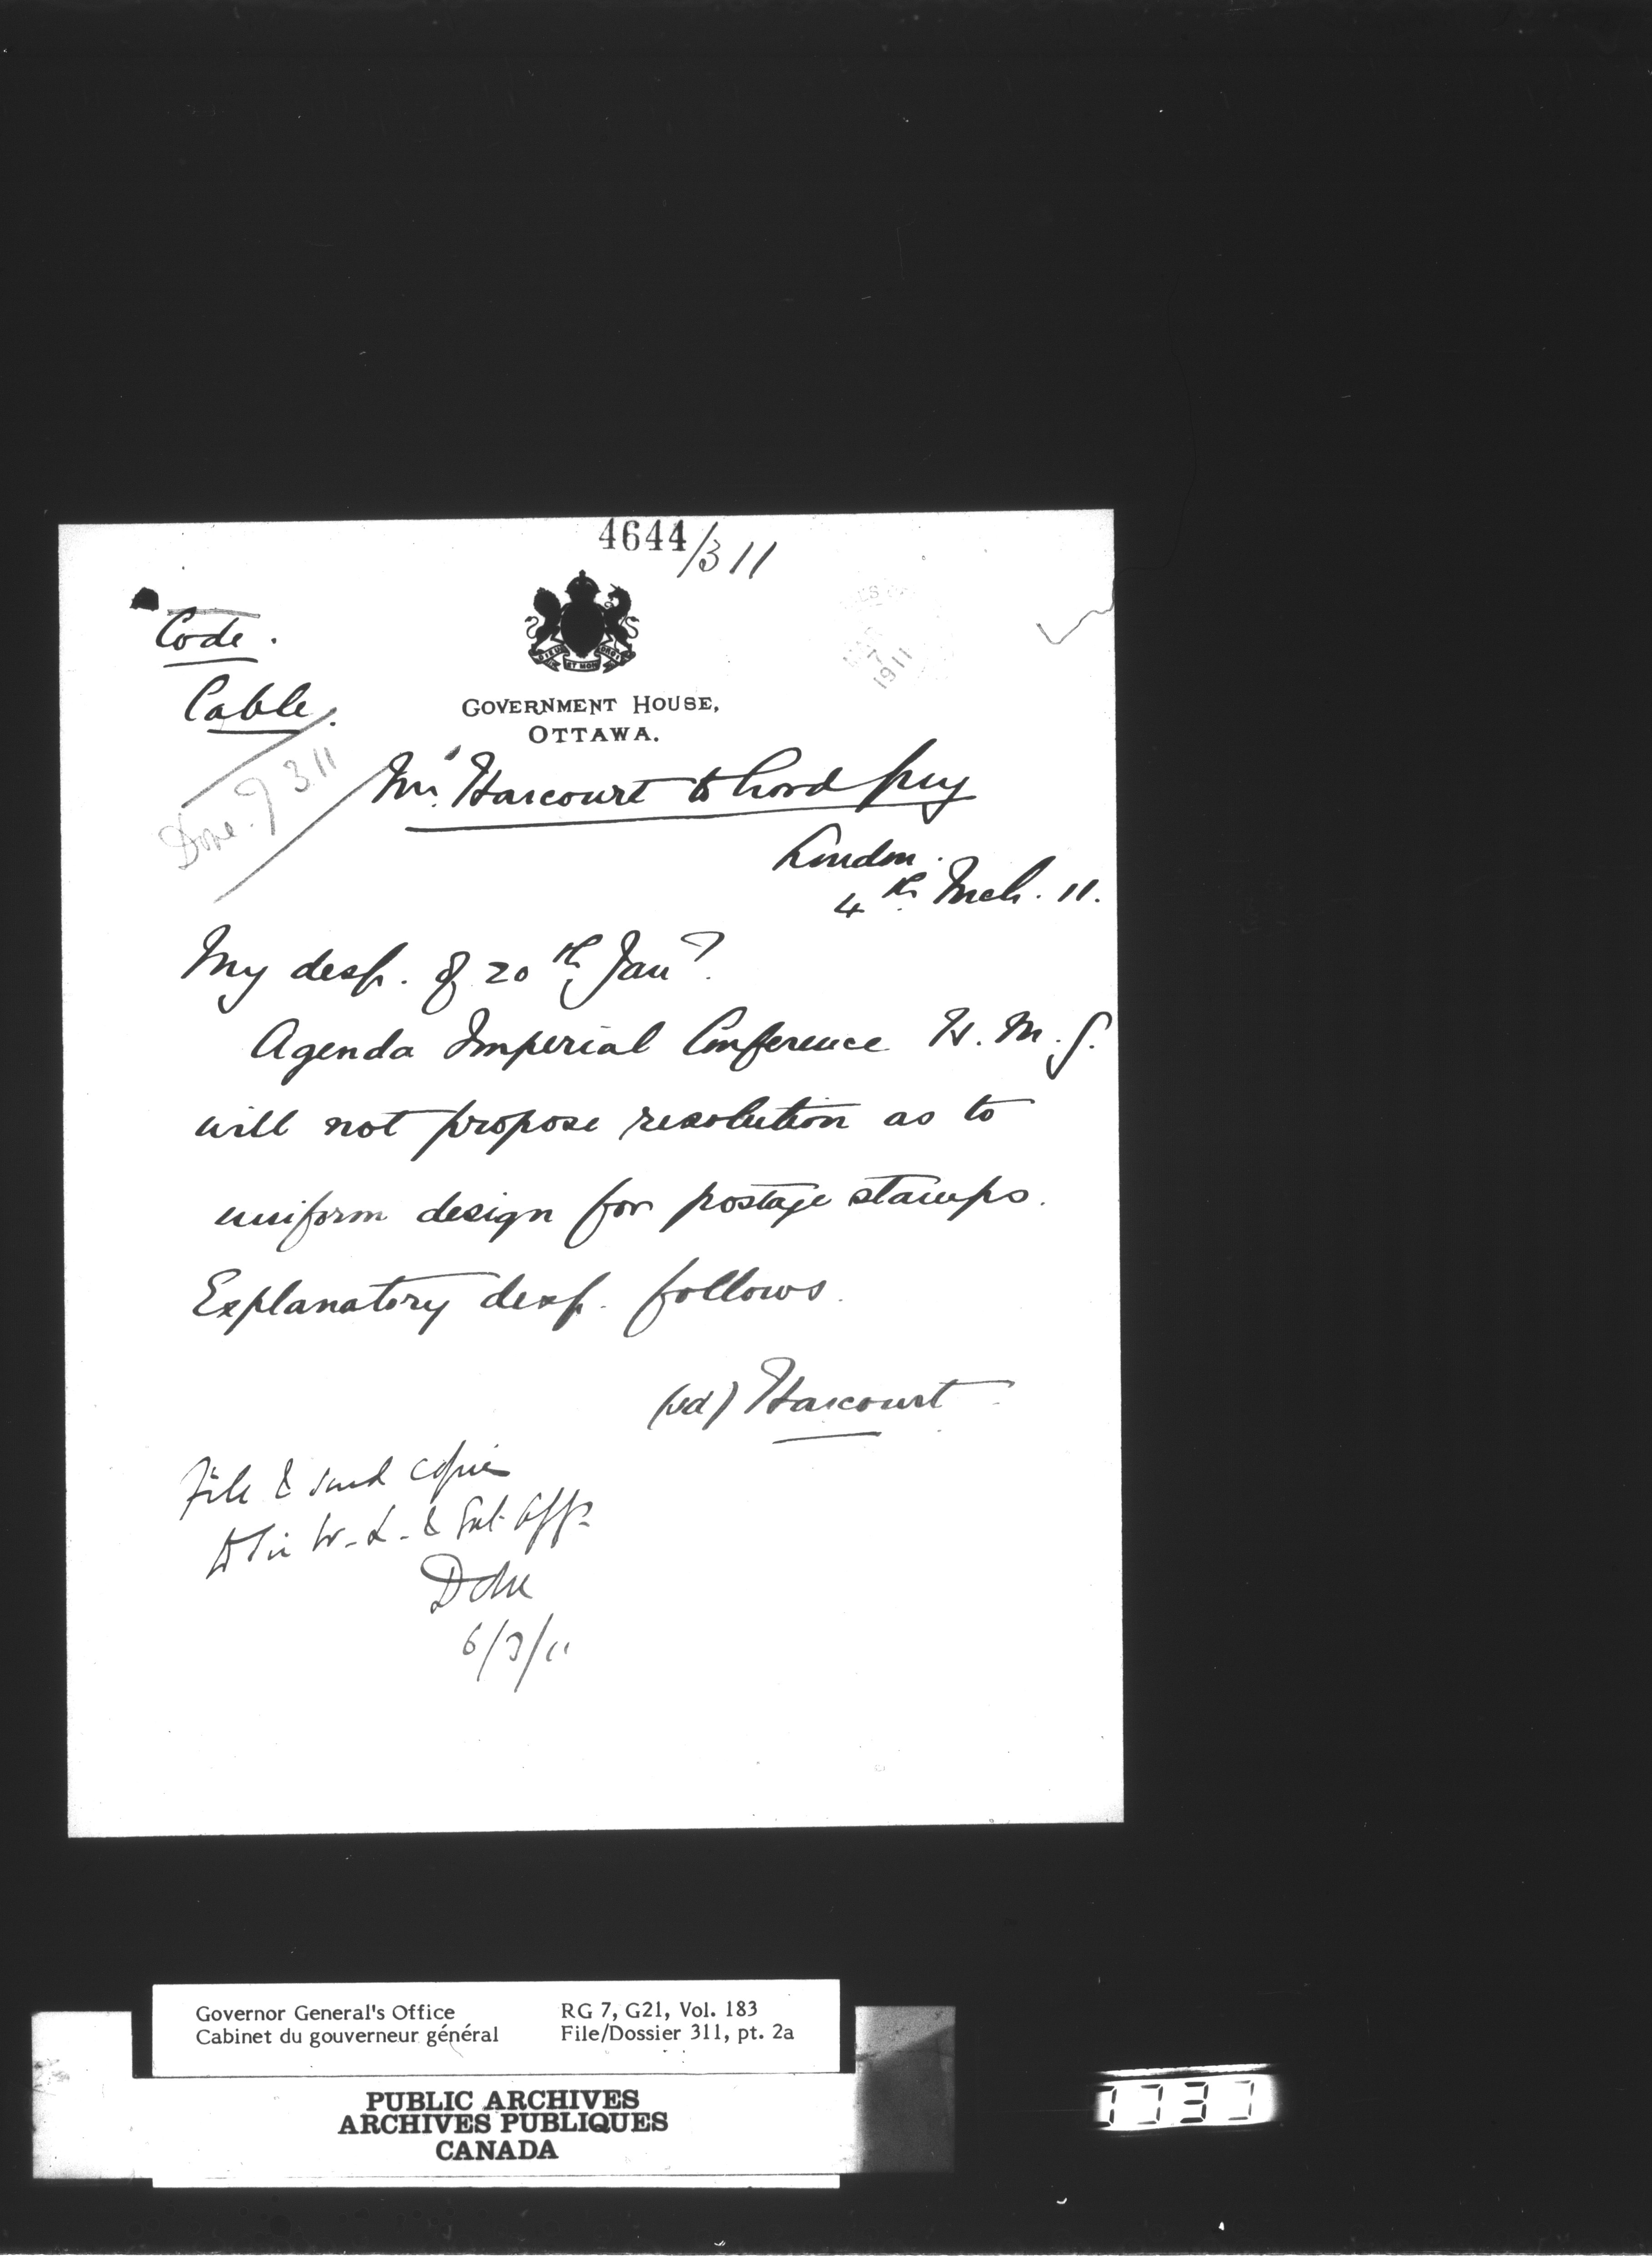 4644/311
Code.
Cable.
DIEU ET MON DROIT
GOVERNMENT HOUSE,
OTTAWA.
MAR 7 1911
Done. 9 3 11
Mr. Harcourt to Lord Grey
London.
4th Mch. 11.
My desp. of 20th Jany.
Agenda Imperial Conference H. M. G.
will not propose resolution as to
uniform design for postage stamps.
Explanatory desp. follows.
(sd) Harcourt
File & send copies
to Sir W. L. & Ext. Affs.
Done
6/3/11
Governor General's Office
Cabinet du gouverneur général
RG 7, G21, Vol. 183
File/Dossier 311, pt. 2a
PUBLIC ARCHIVES
ARCHIVES PUBLIQUES
CANADA